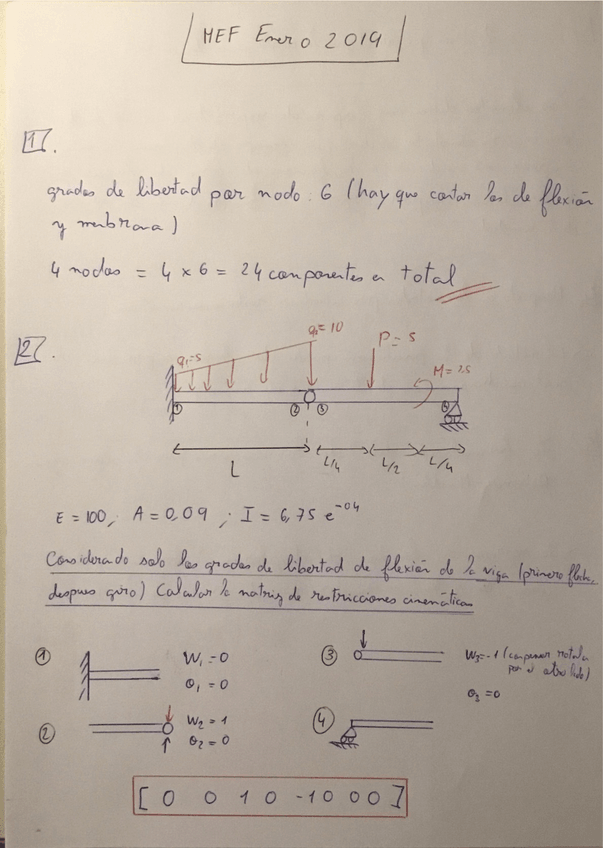 MEF Enero 2019
1.
grados de libertad por nodo: 6 (hay que contar los de flexión
y membrana)
4 nodos = 4 x 6 = 24 componentes en total
2.
q1=5
q2=10
P=5
M=2,5
1
2
3
4
L
L/4
L/2
L/4
E=100; A=0,09; I=6,75 e^-04
Considerado solo los grados de libertad de flexión de la viga (primero flecha,
despues giro) Calcular la matriz de restricciones cinemáticas
1
W1=0
θ1=0
2
W2=1
θ2=0
3
W3=-1 (compensar rotula
por el otro lado)
θ3=0
4
[ 0 0 1 0 -1 0 0 0 ]